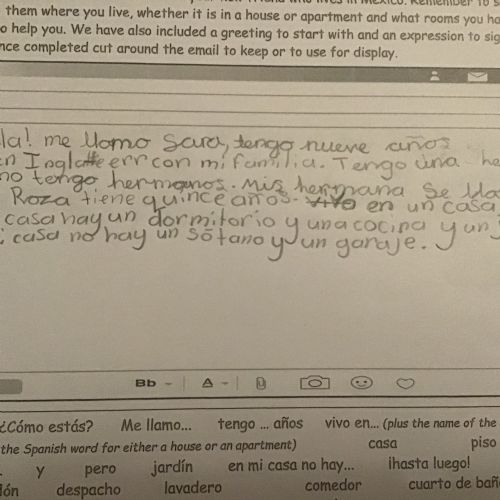 them where you live, whether it is in a house or apartment and what rooms you ha
o help you. We have also included a greeting to start with and an expression to sig
nce completed cut around the email to keep or to use for display.
la! me llamo Sara, tengo nueve años
n Inglatteerr con mi familia. Tengo una he
no tengo hermanos. Mis hermana Se lla
Roza tiene quince años. vivo en un casa
casa hay un dormitorio y una cocina y un
casa no hay un sótano y un garaje.
Bb A
¿Cómo estás? Me llamo... tengo ... años vivo en... (plus the name of the
the Spanish word for either a house or an apartment) casa piso
y pero jardín en mi casa no hay... ¡hasta luego!
lón despacho lavadero comedor cuarto de bañ